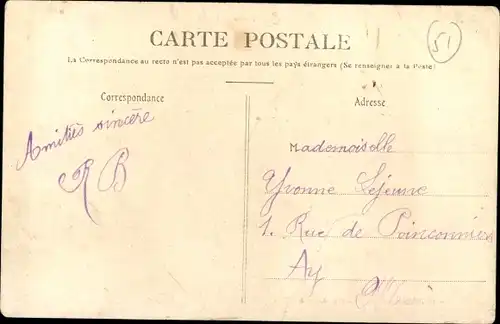 CARTE POSTALE
51
La Correspondance au recto n'est pas acceptée par tous les pays étrangers (Se renseigner à la Poste)
Correspondance
Adresse
Amitiés sincère
R B
Mademoiselle
Yvonne Lejeune
1. Rue de Poinconniers
Ay